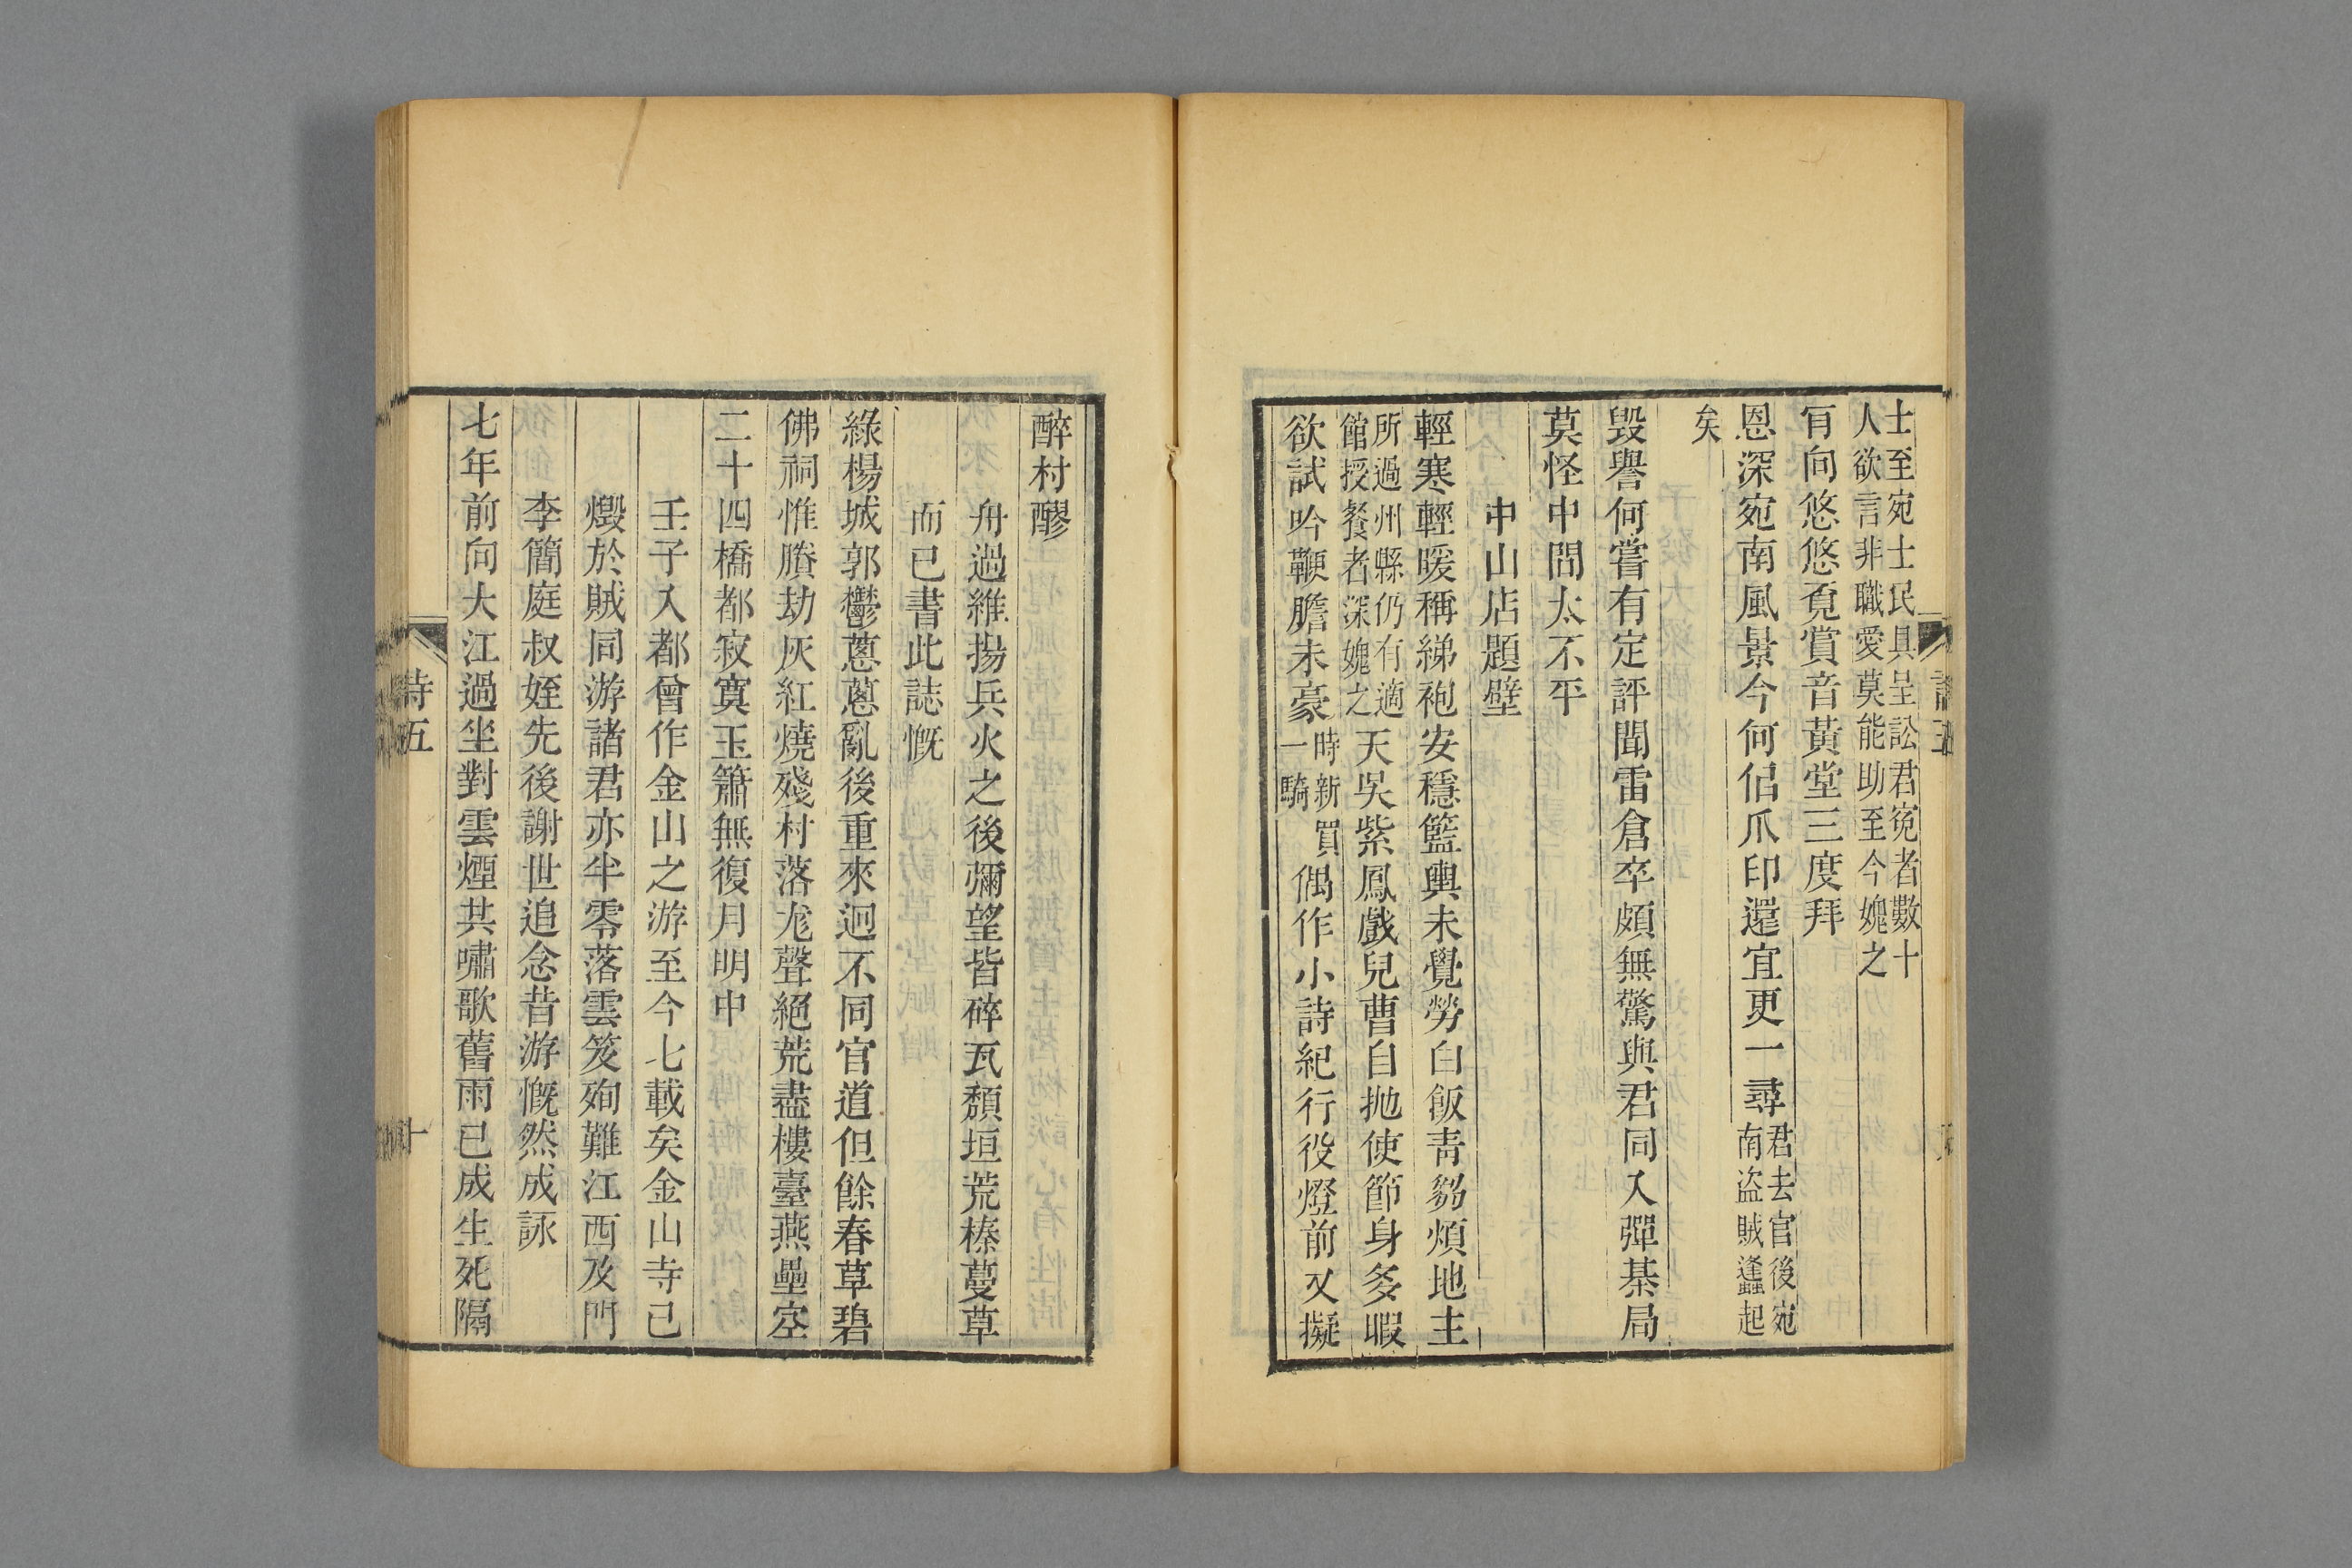 士至宛士民具呈訟君寃者數十
人欲言非職愛莫能助至今媿之
肯向悠悠覓賞音黃堂三度拜
恩深宛南風景今何侣爪印還宜更一尋君去官後宛
南盗賊蠭起
矣
毁譽何嘗有定評聞雷倉卒頗無驚與君同入彈棊局
莫怪中間太不平
中山店題壁
輕寒輕暖稱綈袍安穩籃輿未覺勞白飯青芻煩地主
所過州縣仍有適
館授餐者深媿之天吳紫鳳戲兒曹自抛使節身多暇
欲試吟鞭膽未豪時新買
一騎偶作小詩紀行役燈前又擬
醉村醪
舟過維揚兵火之後彌望皆碎瓦頽垣荒榛蔓草
而已書此誌慨
綠楊城郭鬱蔥蔥亂後重來迥不同官道但餘春草碧
佛祠惟賸劫灰紅燒殘村落尨聲絕荒盡樓臺燕壘空
二十四橋都寂寞玉簫無復月明中
壬子入都曾作金山之游至今七載矣金山寺已
燬於賊同游諸君亦半零落雲笈殉難江西及門
李簡庭叔姪先後謝世追念昔游慨然成詠
七年前向大江過坐對雲煙共嘯歌舊雨已成生死隔
詩五
十